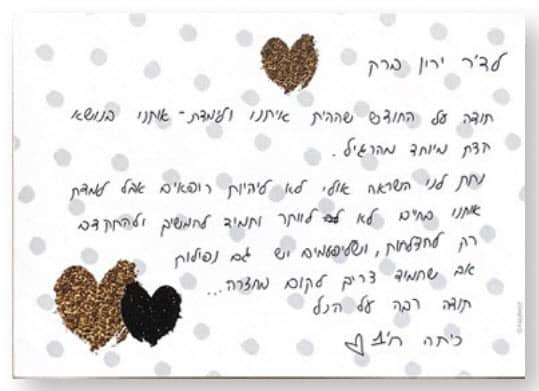 לד"ר ירון ברק
תודה על החודש שהיית איתנו ולימדת - אותנו בנושא
קצת מיוחד מהרגיל.
נתת לנו השראה אולי לא להיות רופאים אבל לימדת
אותנו בחיים לא לוותר ותמיד להמשיך ולהתקדם
רק להצלחות, ושלפעמים יש גם נפילות
אב שתמיד צריך לקום מחזרה...
תודה רבה על הכל
כיתה ח'